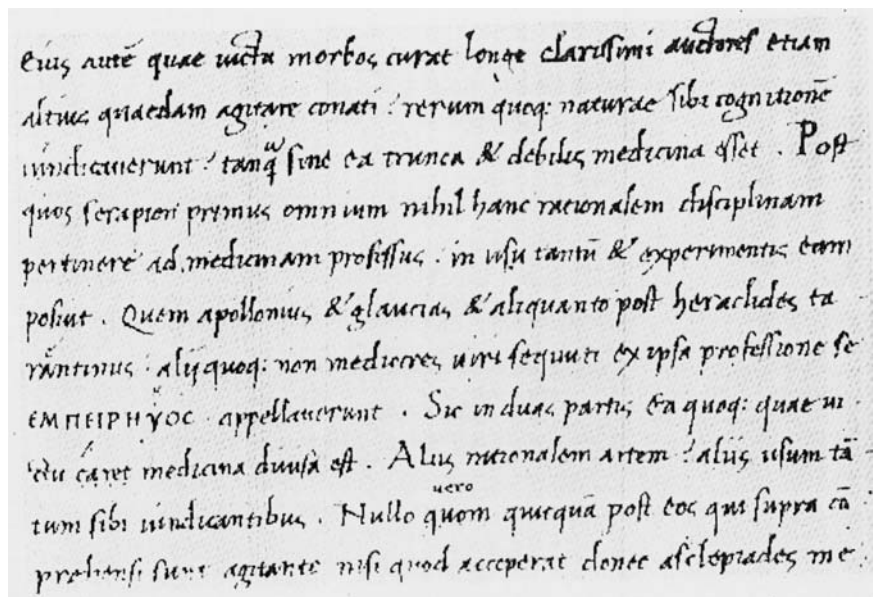 Eius autē quae uicta morbos curat longe clarissimi auctores etiam
altius quaedam agitare conati: rerum quoq: naturae sibi cognitionē
uindicauerunt: tanq̃ sine ea trunca & debilis medicina esset. Post
quos serapion primus omnium nihil hanc rationalem disciplinam
pertinere ad medicinam professus. in usu tantū & experimentis eam
posuit. Quem apollonius & glaucias & aliquanto post heraclides ta
rantinus: alij quoq: non mediocres uiri sequuti ex ipsa professione se
ΕΜΠΕΙΡΗΥΟC appellauerunt. Sic in duas partis Ea quoq: quae ui
ctu caret medicina diuisa est. Aliis rationalem artem: aliis usum tā
tum sibi uindicantibus. Nullo uero quom quicquā post eos qui supra cō
prehensi sunt agitante nisi quod acceperat donec asclepiades me